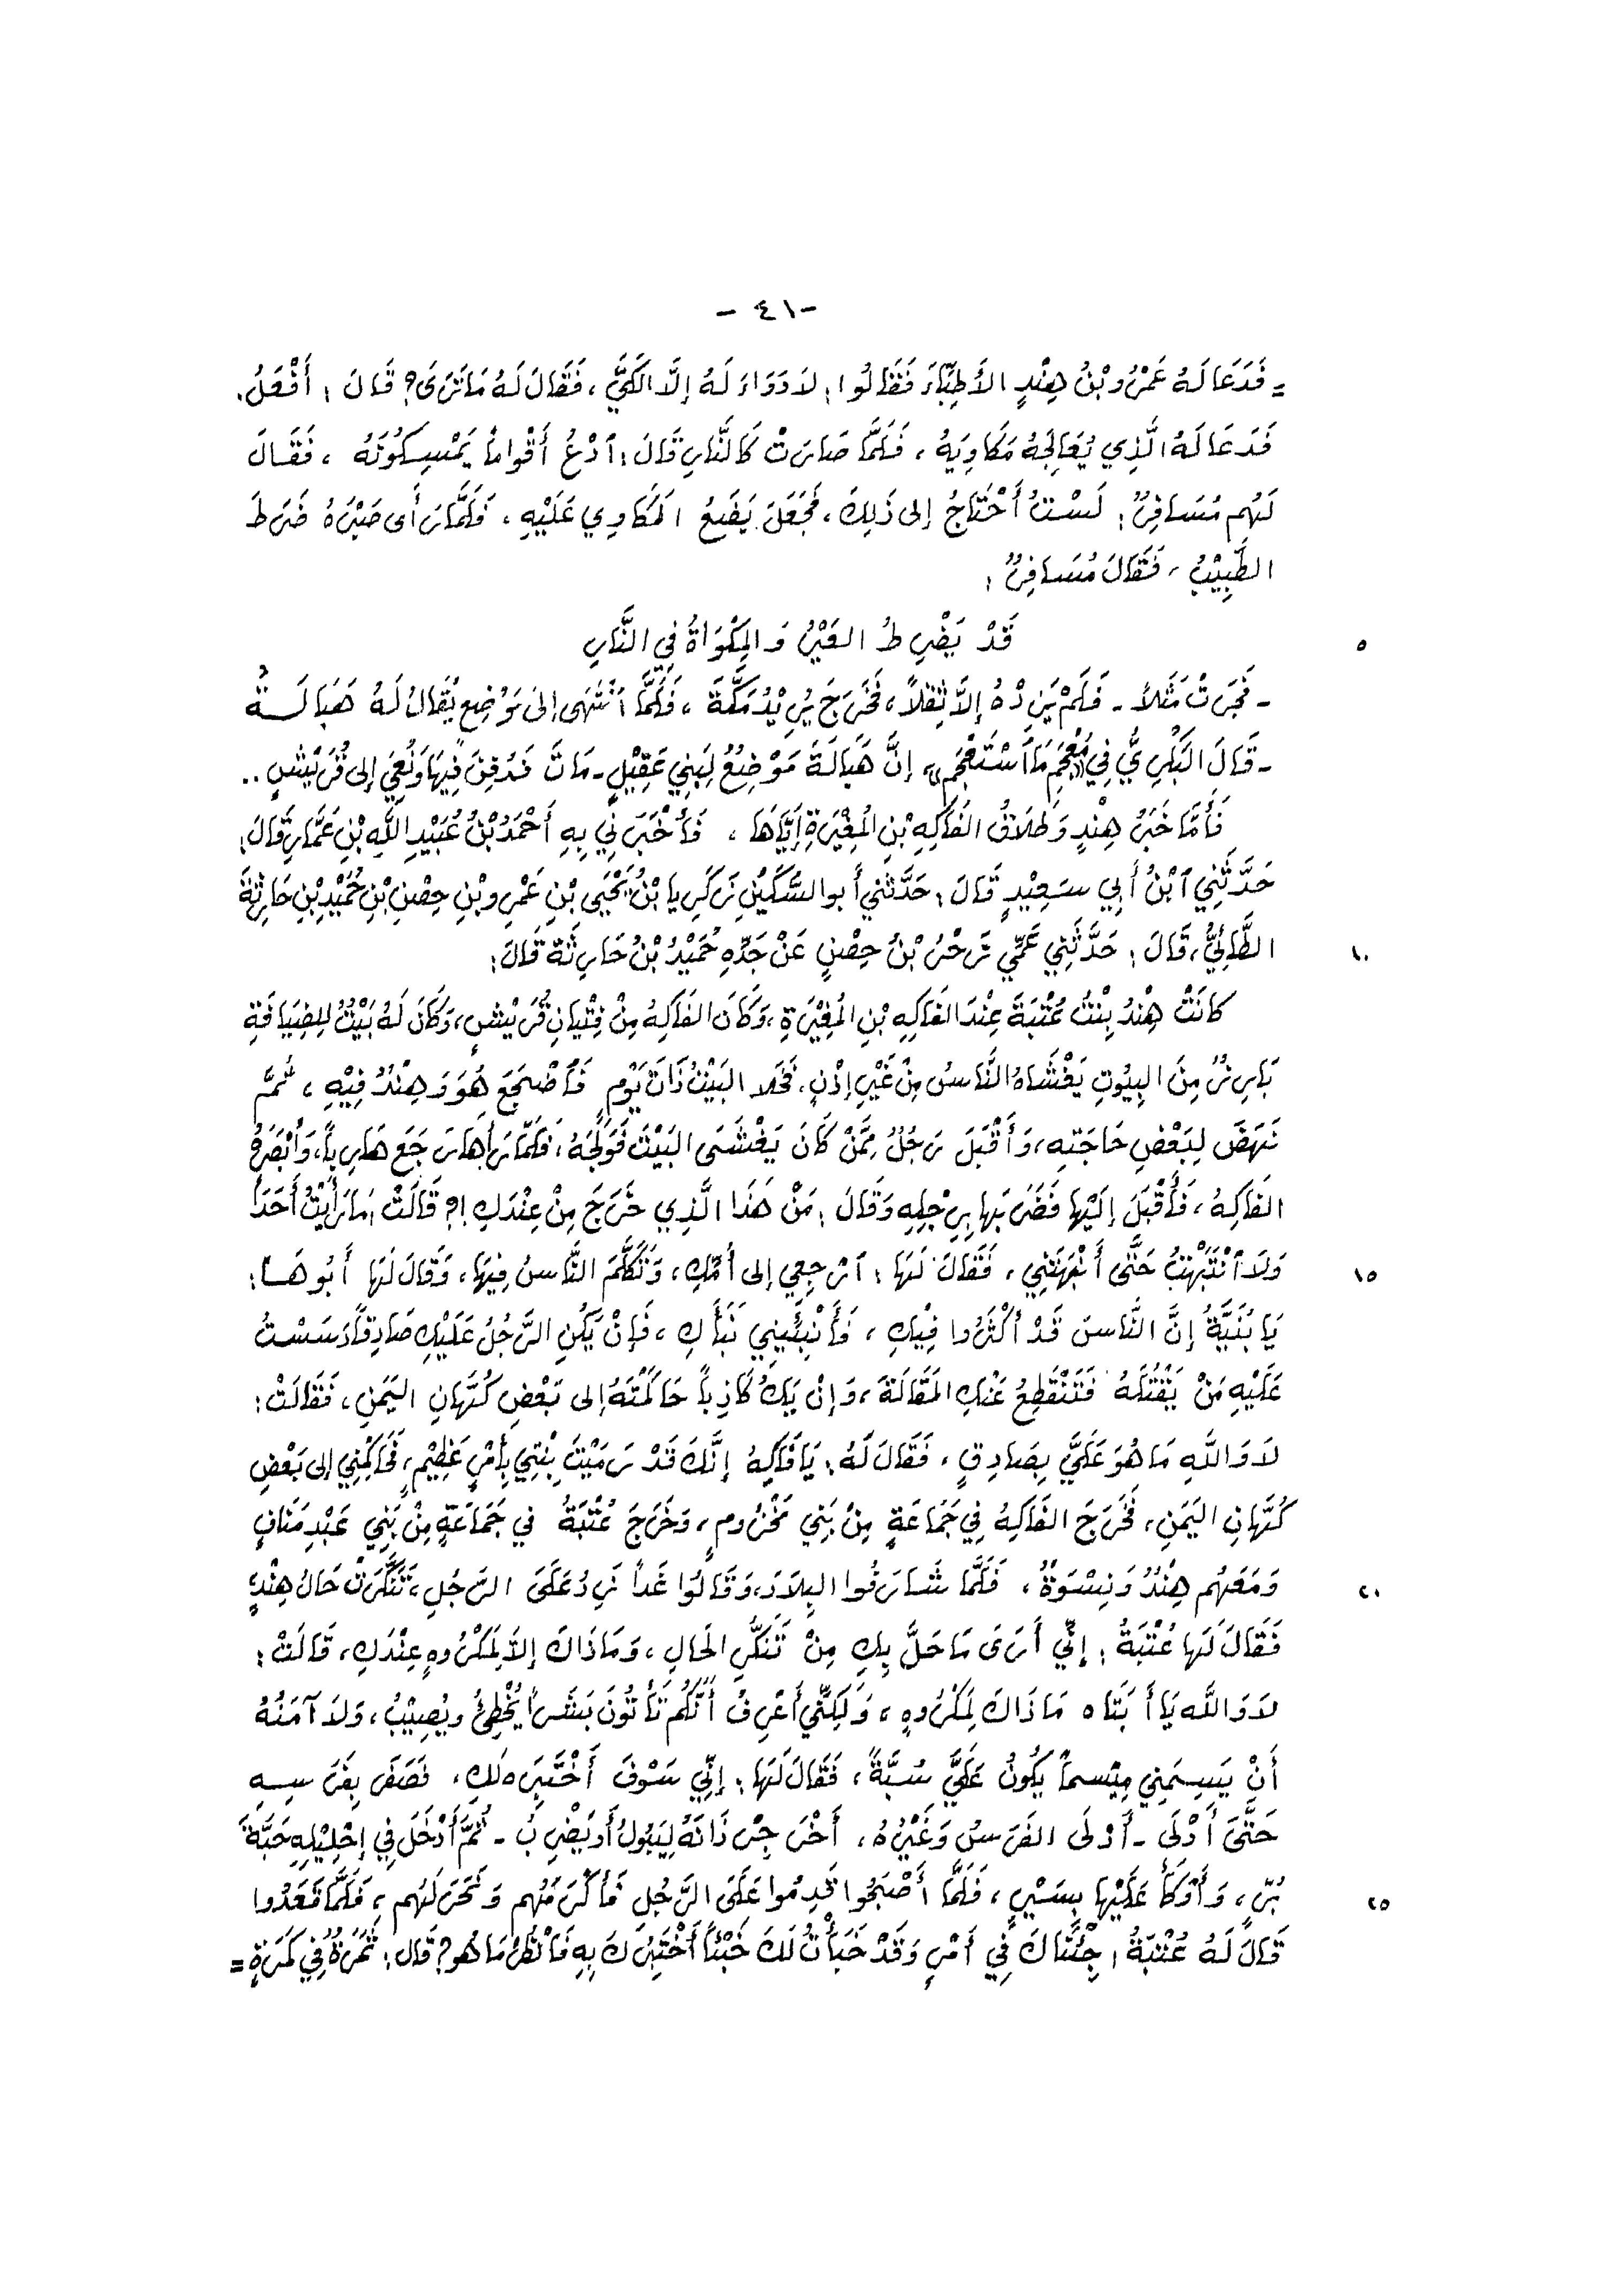 -٤١ -
= فَدَعَا لَهُ عَمْرُو بْنُ هِنْدٍ الأَطِبَّاءَ فَقَالُوا: لاَ دَوَاءَ لَهُ إلَّا الكَيَّ، فَقَالَ لَهُ مَا تَرَى؟ قَالَ: أَفْعَلُ.
فَدَعَا لَهُ الَّذِي يُعَالِجُهُ مَكَاوِيَهُ، فَلَمَّا صَارَتْ كَالنَّارِ قَالَ: اَدْعُ أَقْوَاماً يَمْسِكُونَهُ، فَقَالَ
لَهُم مُسَافِرٌ: لَسْتُ أَحْتَاجُ إلى ذَلِكَ، فَجَعَلَ يَضَعُ المَكَاوِي عَلَيْهِ، فَلَمَّا رَأى صَبْرَهُ ضَرَطَ
الطَّبِيْبُ، فَقَالَ مُسَافِرٌ:
٥ قَدْ يَضْرِطُ العَيْرُ وَالمِكْوَاةُ فِي النَّارِ
- فَجَرَتْ مَثَلاً - فَلَمْ يَزِدْهُ إلَّا ثِقْلاً، فَخَرَجَ يُرِيْدُ مَكَّةَ، فَلَمَّا اَنْتَهَى إلىَ مَوْضِعٍ يُقَالُ لَهُ هُبَالَةُ
- قَالَ البَكْرِيُّ فِي «مُعْجَمِ مَا اَسْتُعْجِمَ» إنَّ هُبَالَةَ مَوْضِعٌ لِبَنِي عَقِيْلٍ - مَاتَ فَدُفِنَ فِيهَا وَنُعِيَ إلى قُرَيْشٍ..
فَأَمَّا خَبَرُ هِنْدٍ وَطَلاَقُ الفَاكِهِ بْنِ المُغِيْرَةِ إيَّاهَا، فَأَخْبَرَنِي بِهِ أَحْمَدُ بْنُ عُبَيْدِ اللَّهِ بْنِ عَمَّارٍ قَالَ:
حَدَّثَنِي اَبْنُ أَبِي سَعِيْدٍ قَالَ: حَدَّثَنِي أَبو السُّكَيْنِ زَكَرِيا بْنُ يَحْيَى بْنِ عَمْرِو بْنِ حِصْنِ بْنِ حُمَيْدِ بْنِ حَارِثَةَ
١٠ الطَّائِيُّ، قَالَ: حَدَّثَنِي عَمِّي زَحْرُ بْنُ حِصْنٍ عَنْ جَدِّهِ حُمَيْدُ بْنُ حَارِثَةَ قَالَ:
كَانَتْ هِنْدُ بِنْتُ عُتْبَةَ عِنْدَ الفَاكِهِ بْنِ المُغِيْرَةِ، وَكَانَ الفَاكِهُ مِنْ فِتْيَانِ قُرَيْشٍ، وَكَانَ لَهُ بَيْتٌ لِلضِيَافَةِ
بَارِزٌ مِنَ البِيُوتِ يَغْشَاهُ النَّاسُ مِنْ غَيْرِ إذْنٍ، فَخَلا البَيْتُ ذَاتَ يَوْمٍ فَاَضْجَعَ هُوَ وَهِنْدٌ فِيْهِ، ثُمَّ
نَهَضَ لِبَعْضِ حَاجَتِهِ، وَأَقْبَلَ رَجُلٌ مِمَّنْ كَانَ يَغْشَى البَيْتَ فَوَلَجَهُ، فَلَمَّا رَأهَا رَجَعَ هَارِباً، وَأَبْصَرَهُ
الفَاكِهُ، فَأَقْبَلَ إلَيْها فَضَرَبَها بِرِجْلِهِ وَقَالَ: مَنْ هَذَا الَّذِي خَرَجَ مِنْ عِنْدَكِ!؟ قَالَتْ: مَا رَأَيْتُ أَحَدَاً
١٥ وَلاَ اَنْتَبَهْتُ حَتَّى أَنْبَهْتَنِي، فَقَالَ لَهَا: اَرْجِعِي إلى أُمِّكِ، وَتَكَلَّمَ النَّاسُ فِيهَا، وَقَالَ لَهَا أَبُوهَا:
يَا بُنَيَّةُ إنَّ النَّاسَ قَدْ أكْثَرُوا فِيْكِ، فَأَنْبِئِيني نَبَأَكِ، فَإنْ يَكُنِ الرَّجُلُ عَلَيْكِ صَادِقَاً دَسَسْتُ
عَلَيْهِ مَنْ يَقْتُلَهُ فَتَنْقَطِعُ عَنْكِ المَقَالَةَ، وَإنْ يَكُ كَاذِباً حَاكَمْتَهُ إلى بَعْضِ كُهَّانِ اليَمَنِ، فَقَالَتْ:
لاَ وَاللَّهِ مَا هُوَ عَلَيَّ بِصَادِقٍ، فَقَالَ لَهُ: يَا فَاكِهُ إنَّكَ قَدْ رَمَيْتَ بِنْتِي بِأَمْرٍ عَظِيْمٍ، فَحَاكِمْنِي إلى بَعْضِ
كُهَّانِ اليَمَنِ، فَخَرَجَ الفَاكِهُ فِي جَمَاعَةٍ مِنْ بَنِي مَخْزُومٍ، وَخَرَجَ عُتْبَةُ في جَمَاعَةٍ مِنْ بَنِي عَبْدِ مَنَافٍ
٢٠ وَمَعَهُم هِنْدٌ وَنِسْوَةٌ، فَلَمَّا شَارَفُوا البِلاَدَ، وَقَالُوا غَداً نَرِدُ عَلَى الرَّجُلِ، تَنَكَّرَتْ حَالُ هِنْدٍ،
فَقَالَ لَها عُتْبَةُ: إنِّي أَرَى مَا حَلَّ بِكِ مِنْ تَنَكُّرِ الحَالِ، وَمَا ذَاكَ إلَّا لِمَكْرُوهٍ عِنْدَكِ، قَالَتْ:
لاَ وَاللَّه يَا أَبَتَاه مَا ذَاكَ لِمَكْرُوهٍ، وَلَكِنِّي أَعْرِفُ أَنَّكُم تَأْتُونَ بَشَراً يُخْطِئُ ويُصِيْبُ، وَلاَ آمَنُهُ
أَنْ يَسِمَنِي مِيْسماً يَكُونُ عَلَيَّ سُبَّةً، فَقَالَ لَهَا: إنِّي سَوْفَ أَخْتَبِرَهُ لَكِ، فَصَفَرَ بِفَرَسِهِ
حَتَّى أَدْلَى - أَدْلَى الفَرَسُ وَغَيْرُهُ، أَخْرَجَ جُرْذَانَهُ لِيَبُولُ أَو يَضْرِبُ - ثُمَّ أَدْخَلَ فِي إحْلِيْلِهِ حَبَّةَ
٢٥ بُرٍّ، وَأَوْكَأَ عَلَيْها بِسَيْرٍ، فَلَمَّا أَصْبَحُوا قَدِمُوا عَلَى الرَّجُلِ فَأَكْرَمَهُم وَنَحَرَ لَهُم، فَلَمَّا قَعَدُوا
قَالَ لَهُ عُتْبَةُ: جِئْنَاكَ فِي أَمْرٍ وَقَدْ خَبَأْتُ لَكَ خَبْئَاً أَخْتَبِرُكَ بِهِ فَاَنْظُرْ مَا هُو؟ قَالَ: ثَمَرَةٌ فِي كَمَرَةٍ =